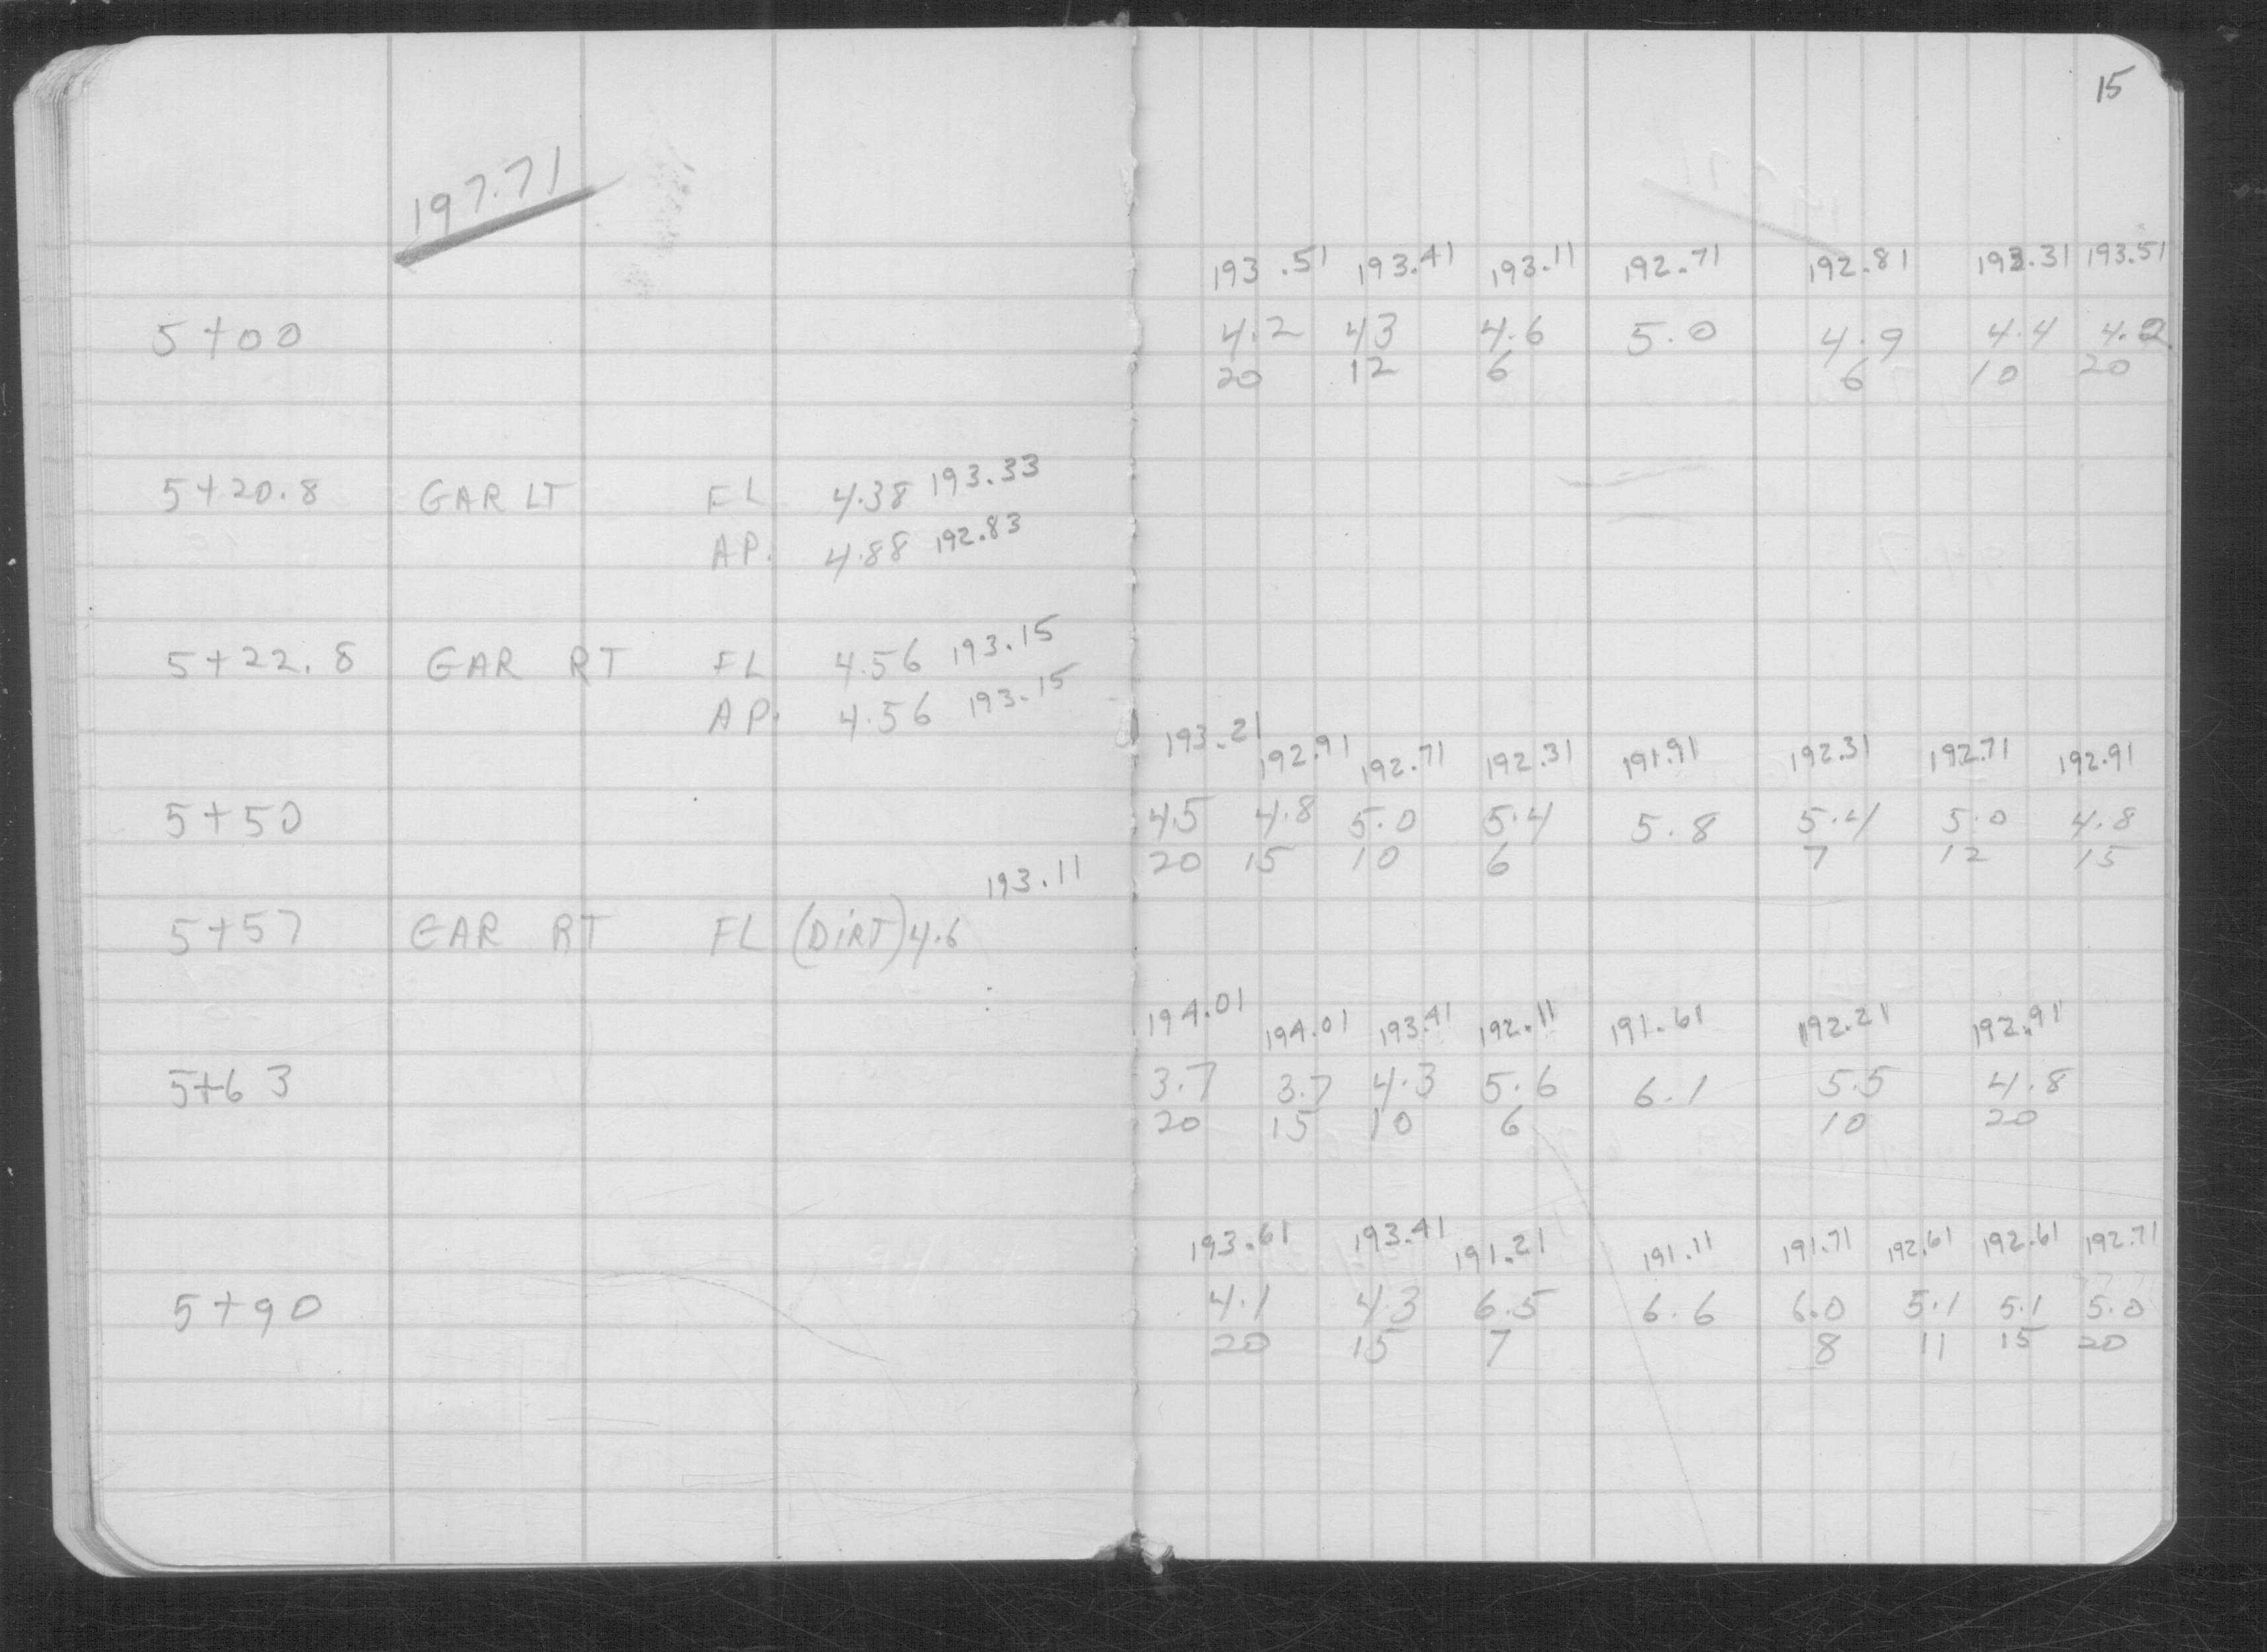 15
197.71
193.51 193.41 193.11 192.71 192.81 193.31 193.51
5+00 4.2 43 4.6 5.0 4.9 4.4 4.2
20 12 6 6 10 20
5+20.8 GAR LT FL 4.38 193.33
AP. 4.88 192.83
5+22.8 GAR RT FL 4.56 193.15
AP. 4.56 193.15
193.21 192.91 192.71 192.31 191.91 192.31 192.71 192.91
5+50 4.5 4.8 5.0 5.4 5.8 5.4 5.0 4.8
20 15 10 6 7 12 15
193.11
5+57 GAR RT FL (DIRT) 4.6
194.01 194.01 193.41 192.11 191.61 192.21 192.91
5+63 3.7 3.7 4.3 5.6 6.1 5.5 4.8
20 15 10 6 10 20
193.61 193.41 191.21 191.11 191.71 192.61 192.61 192.71
5+90 4.1 4.3 6.5 6.6 6.0 5.1 5.1 5.0
20 15 7 8 11 15 20